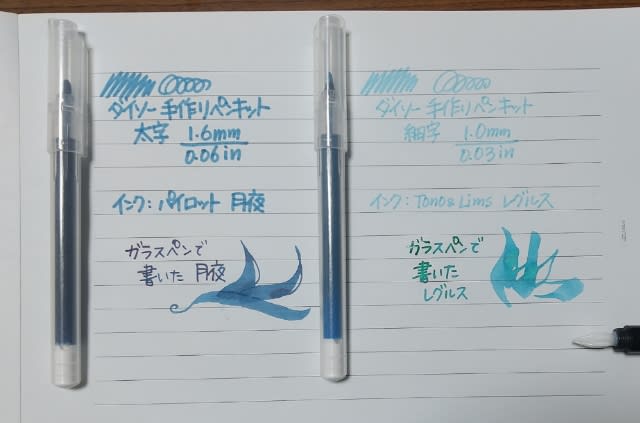 ダイソー 手作りペンキット
太字 1.6mm
0.06in
インク：パイロット 月夜
ガラスペンで
書いた 月夜
ダイソー 手作りペンキット
細字 1.0mm
0.03in
インク：Tono& Lims レグルス
ガラスペンで
書いた
レグルス